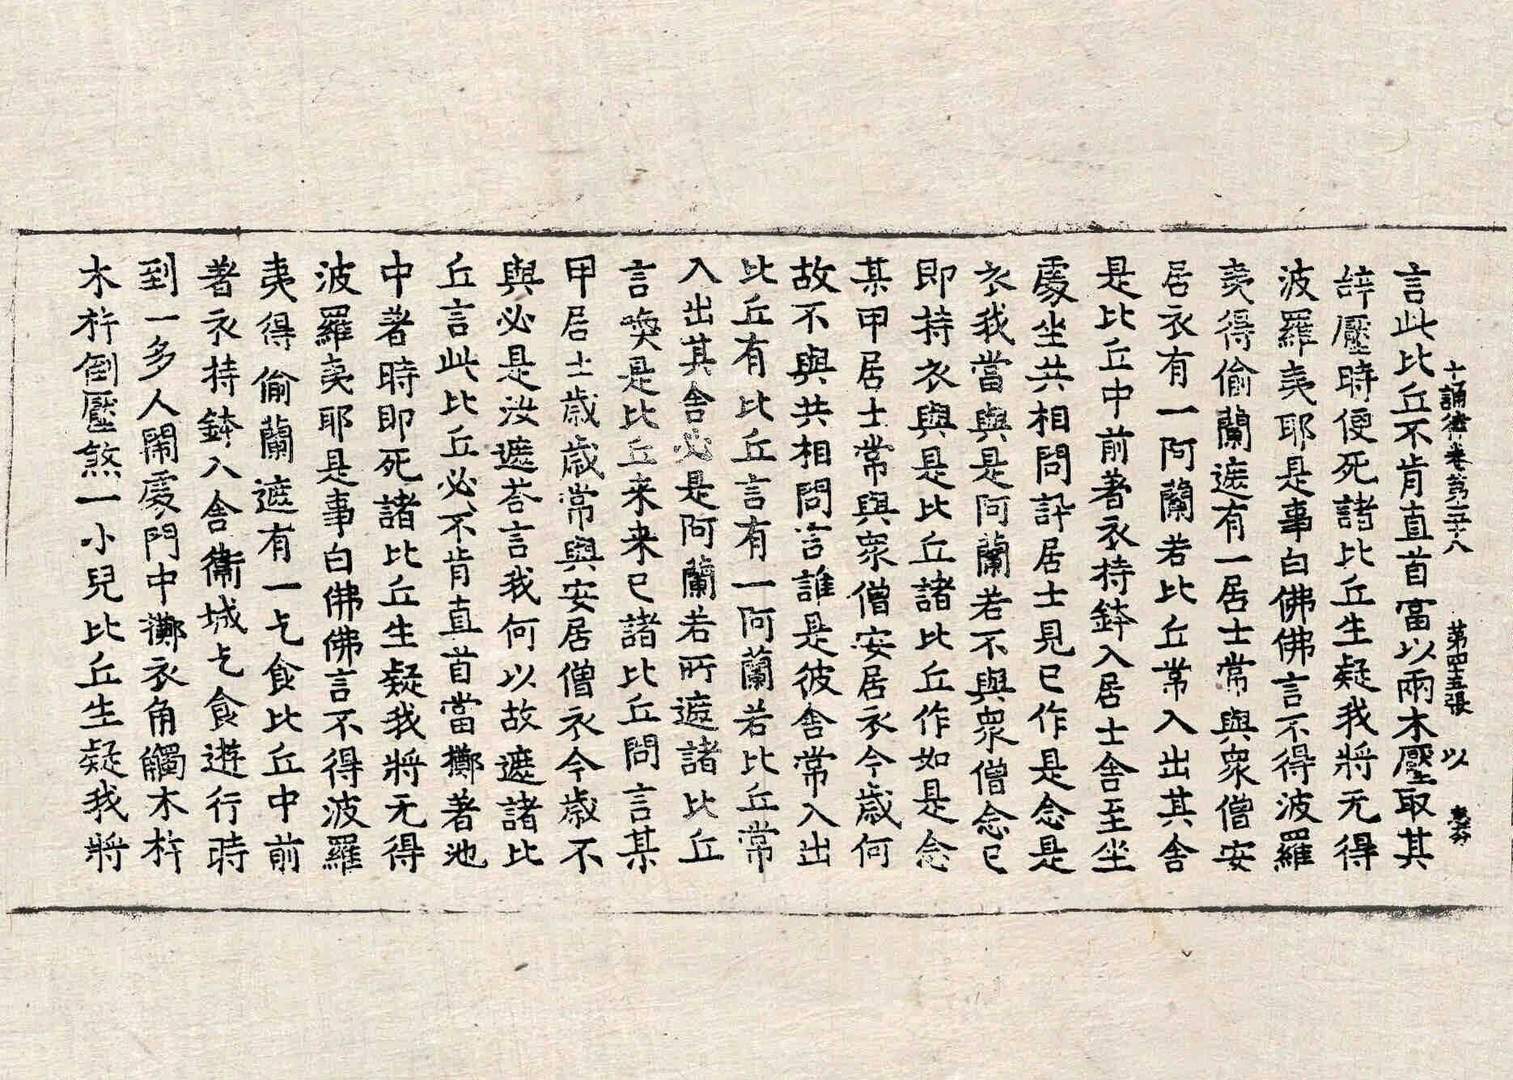 十誦律卷第五十八 第四五張 以
言此比丘不肯直首當以兩木壓取其
辞壓時便死諸比丘生疑我將无得
波羅夷耶是事白佛佛言不得波羅
夷得偷蘭遮有一居士常與衆僧安
居衣有一阿蘭若比丘常入出其舍
是比丘中前著衣持鉢入居士舍至坐
處坐共相問訊居士見已作是念是
衣我當與是阿蘭若不與衆僧念已
即持衣與是比丘諸比丘作如是念
某甲居士常與衆僧安居衣今歲何
故不與共相問言誰是彼舍常入出
比丘有比丘言有一阿蘭若比丘常
入出其舍必是阿蘭若所遮諸比丘
言喚是比丘来来已諸比丘問言某
甲居士歲歲常與安居僧衣今歲不
與必是汝遮荅言我何以故遮諸比
丘言此比丘必不肯直首當擲著池
中著時即死諸比丘生疑我將无得
波羅夷耶是事白佛佛言不得波羅
夷得偷蘭遮有一乞食比丘中前
著衣持鉢入舍衛城乞食遊行時
到一多人閙處門中擲衣角觸木杵
木杵倒壓煞一小兒比丘生疑我將